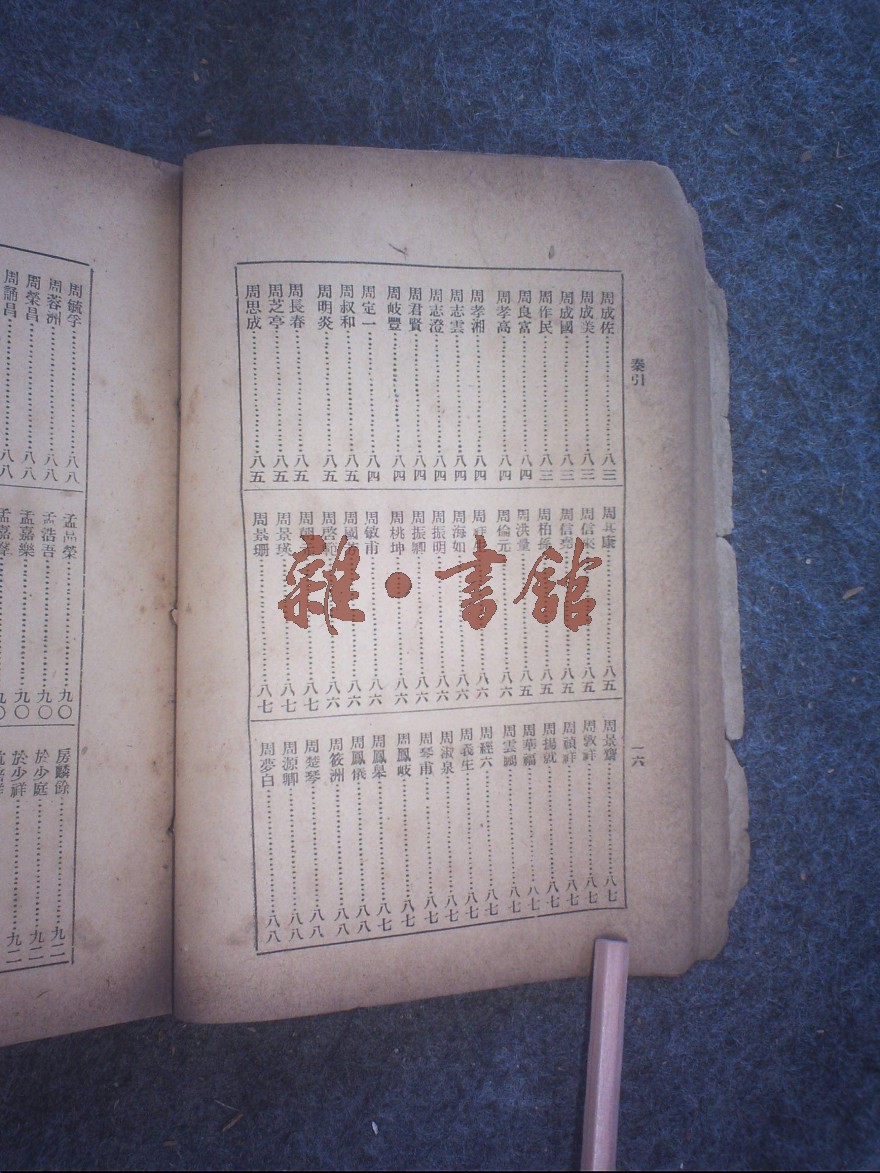 索引
一六
周成佐 八三
周成美 八三
周成國 八三
周作民 八三
周良富 八四
周孝高 八四
周孝湘 八四
周志雲 八四
周志澄 八四
周君賢 八四
周岐豐 八四
周定一 八四
周叔和 八五
周明炎 八五
周長春 八五
周芝亭 八五
周思成 八五
康 八五
周信 八五
周信 八五
周柏 八五
周洪 八六
周倫元 八六
周 八六
周海如 八六
周振明 八六
周振卿 八六
周桃坤 八六
周敏甫 八六
周國 八六
周啓範 八六
周 八七
周景瑛 八七
周景珊 八七
周景齋 八七
周敦祥 八七
周禎祥 八七
周揚 八七
周華福 八七
周雲鵬 八七
周經六 八七
周義生 八七
周淑泉 八七
周琴甫 八七
周鳳岐 八七
周鳳臯 八七
周鳳儀 八八
周筱洲 八八
周楚琴 八八
周源卿 八八
周夢白 八八
周毓孚 八八
周蓉洲 八八
周榮昌 八八
周誦昌 八八
孟 榮 九〇
孟浩吾 九〇
孟嘉樂 九〇
孟嘉 九〇
房麟餘 九二
於少庭 九二
於少祥 九二
雜·書館